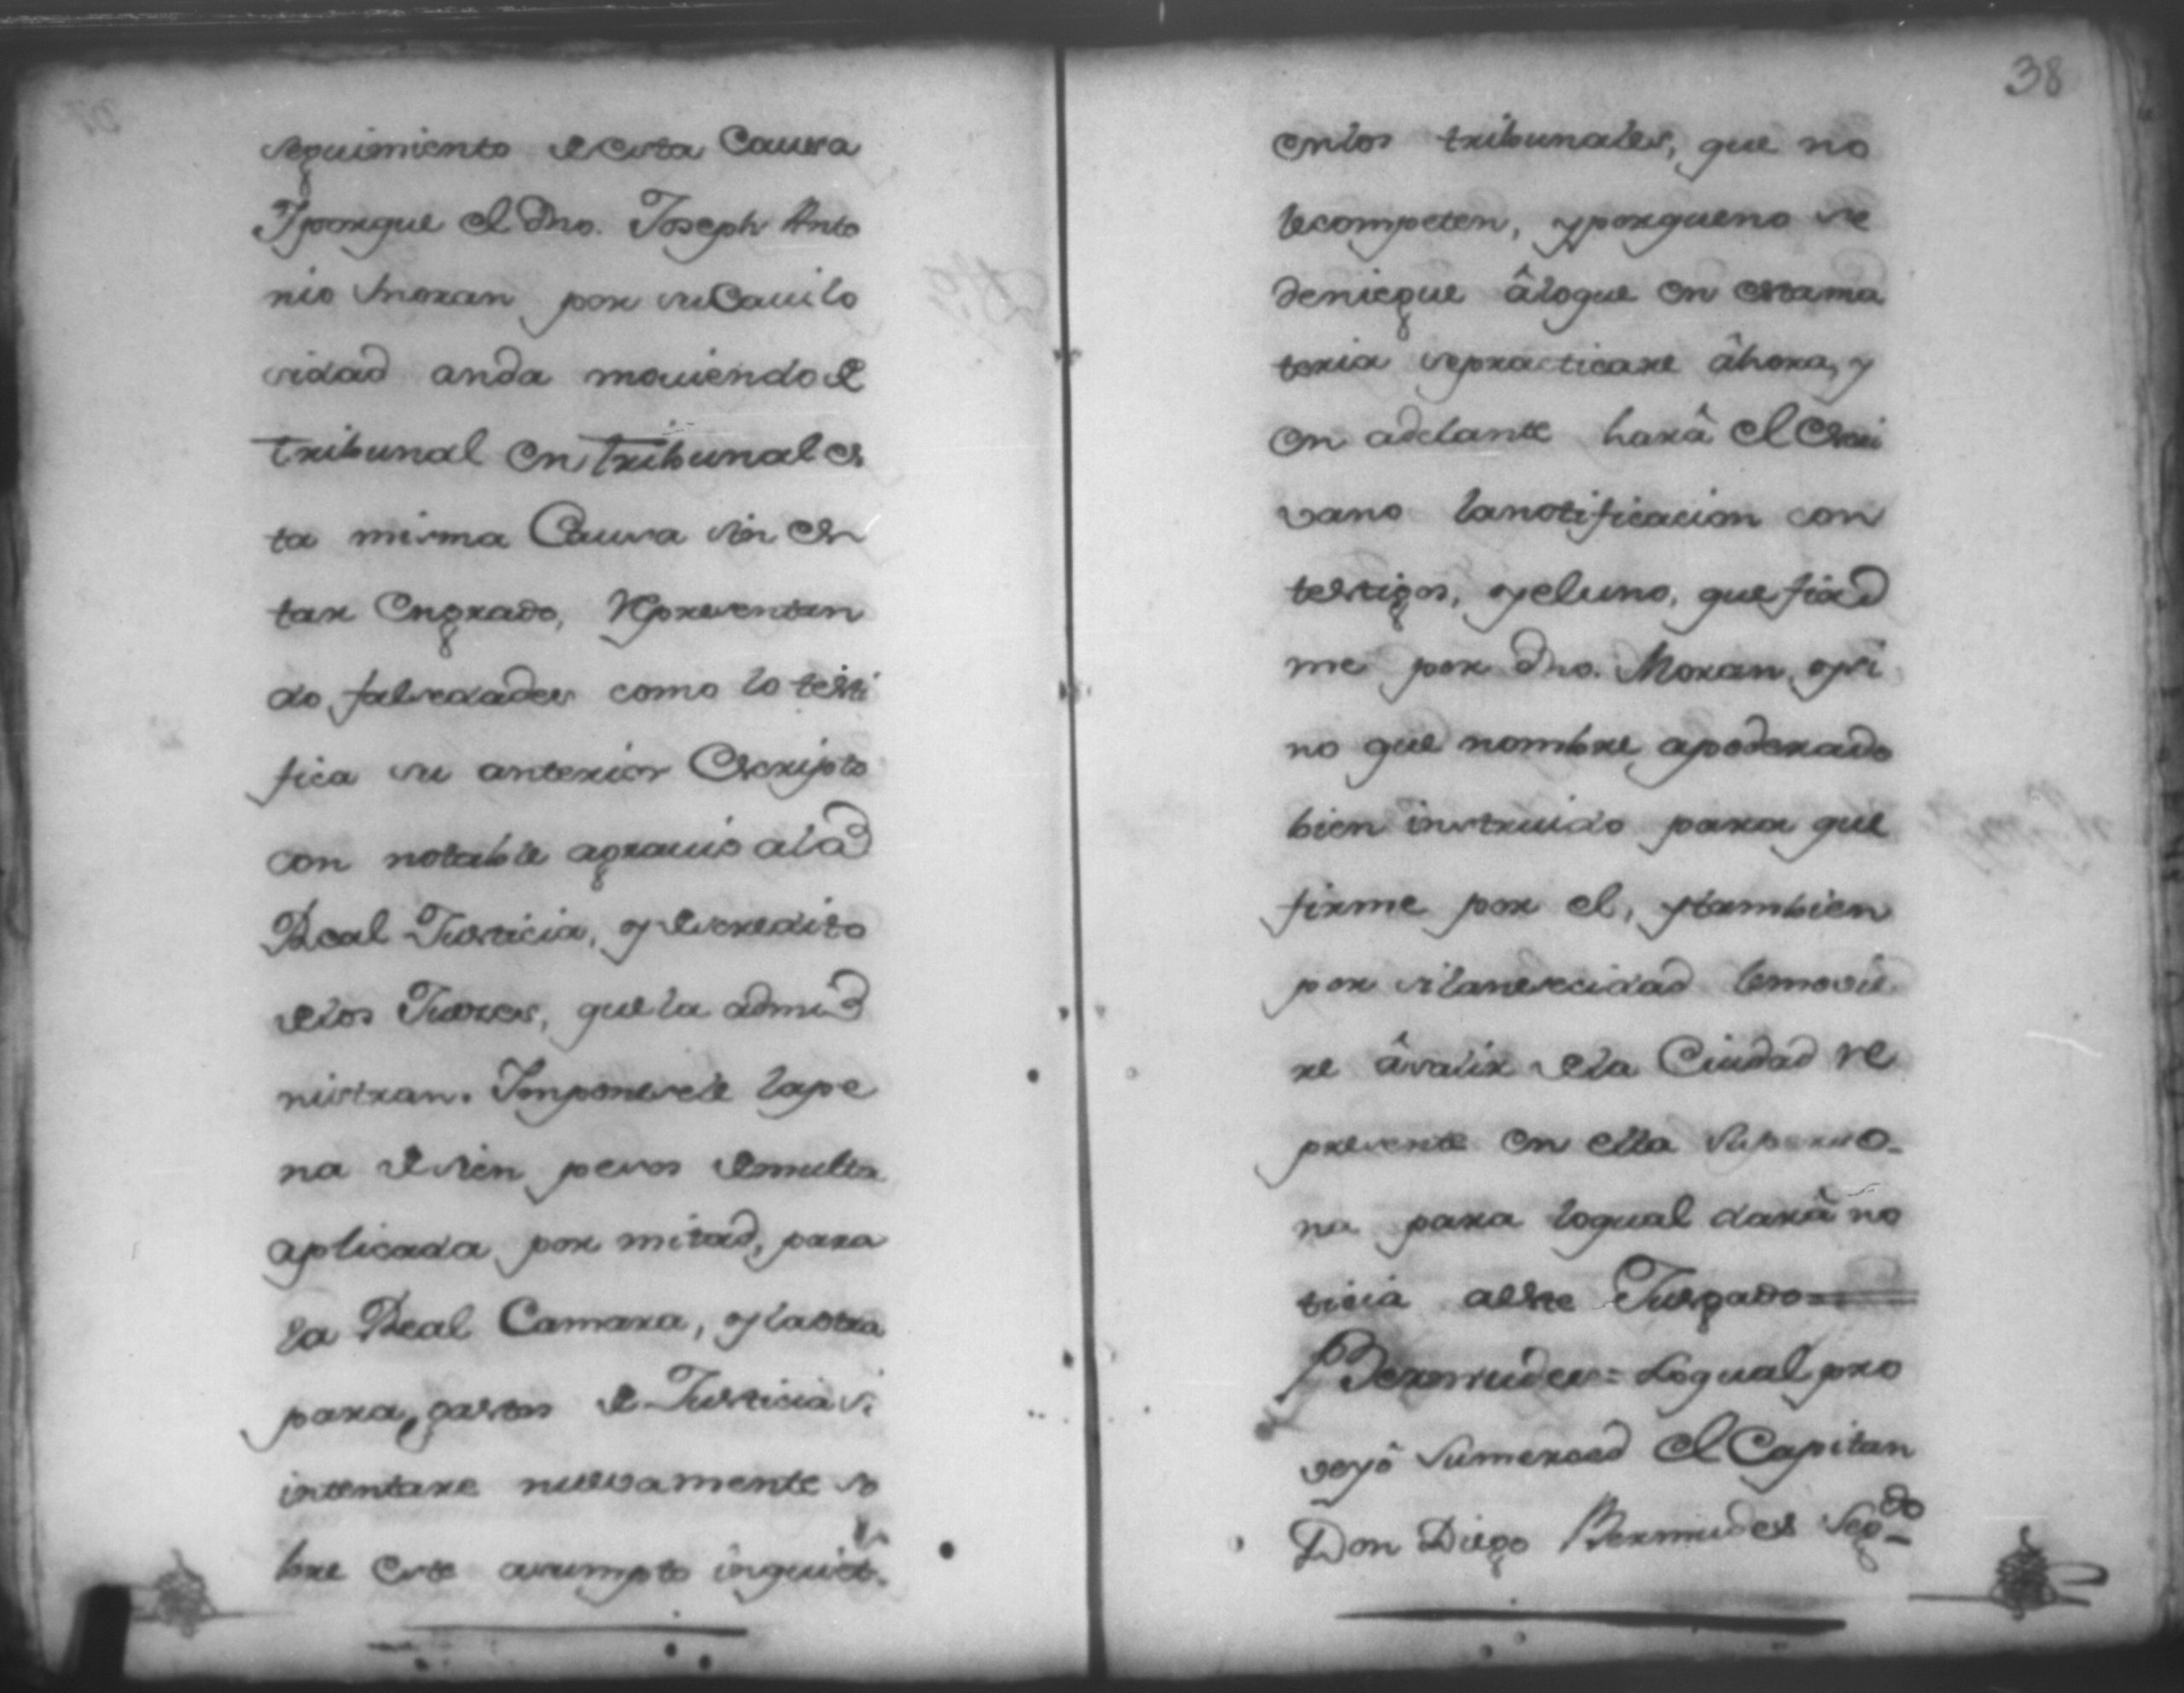 seguimiento de esta Causa
Yporque el dho. Joseph Anto
nio Moran por su Cavilo
sidad anda moviendo de
tribunal en tribunal es
ta misma Causa sin es
tar en grado, representan
do falsedades como lo testi
fica su anterior Escripto
con notable agravio a la
Real Justicia, y descredito
de los Jueces, que la admi
nistran. Imponesele la pe
na de sien pesos de multa
aplicada por mitad, para
la Real Camara, y la otra
para gastos de Justicia si
intentare nuevamente so
bre este asumpto inquiet.
38
en los tribunales, que no
le competen, y porque no se
deniegue â lo que en esta ma
teria se practicare âhora, y
en adelante harâ el Escri
vano la notificacion con
testigos, y el uno, que fir
me por dho. Moran, y si
no que nombre apoderado
bien instruido para que
firme por el, y tambien
por si la nesecidad le movie
re â salir de la Ciudad re
presente en ella su perso-
na para lo qual darâ no
ticia a este Jusgado =
Bermudes = Lo qual pro
veyô su merced el Capitan
Don Diego Bermudes Seg.do